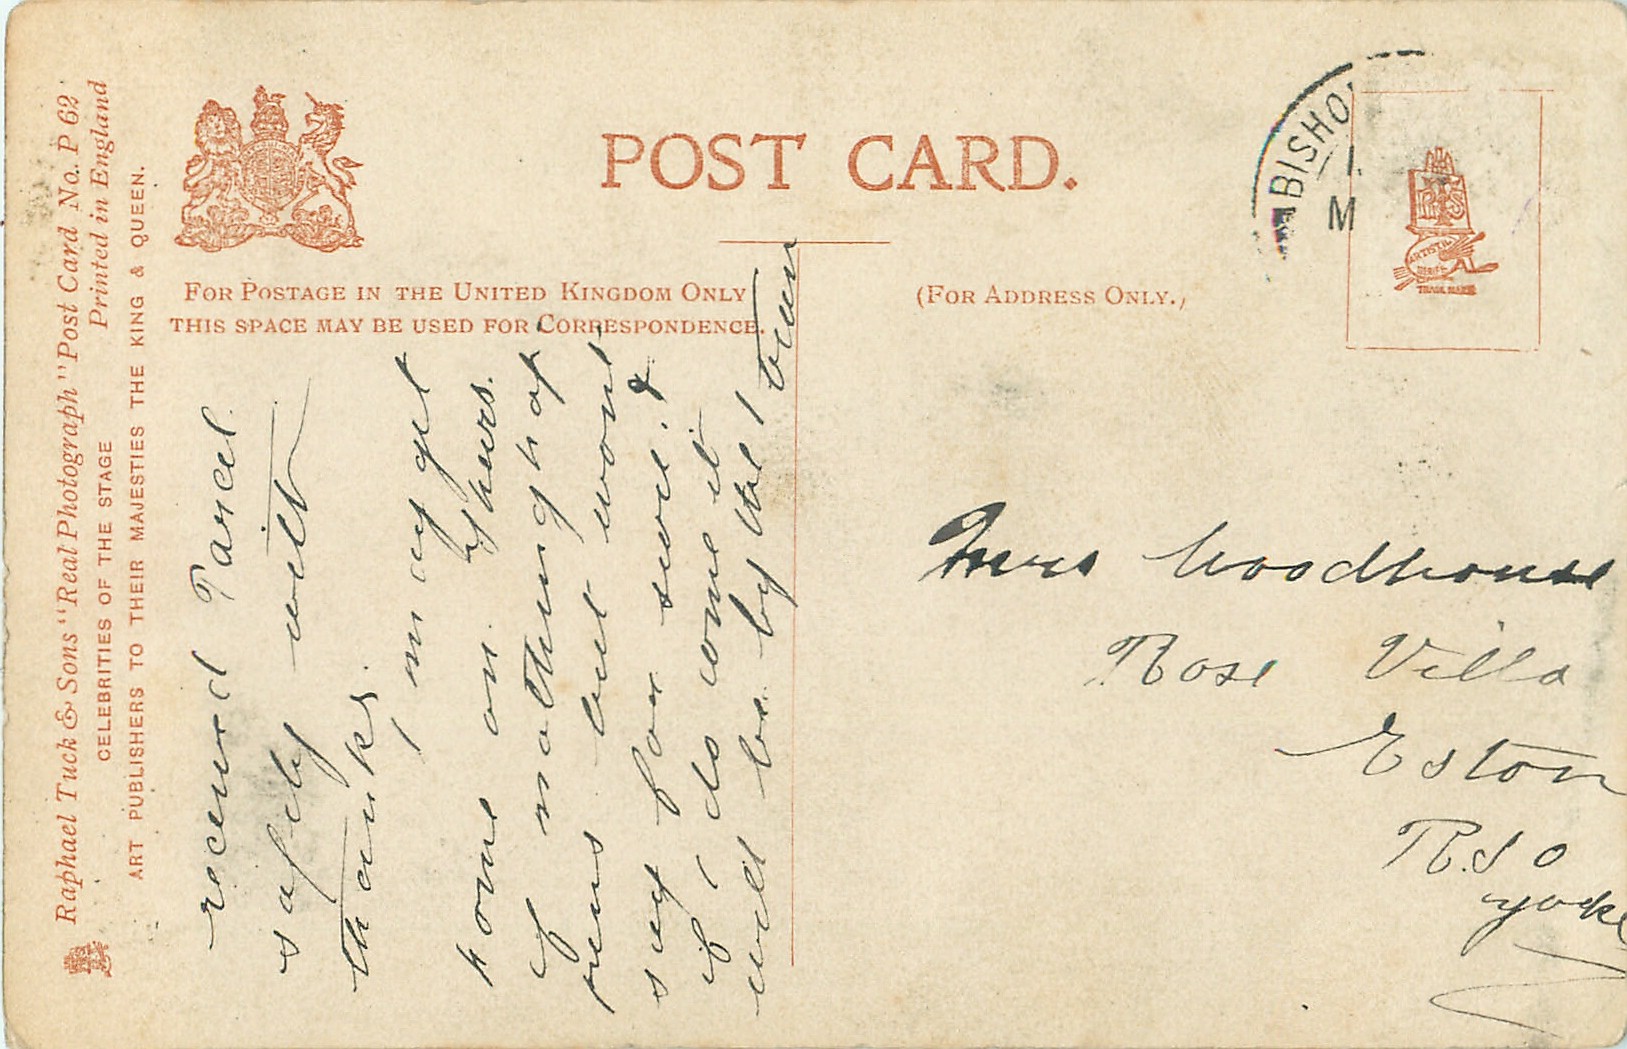 Raphael Tuck & Sons "Real Photograph" Post Card No. P 62
CELEBRITIES OF THE STAGE Printed in England
ART PUBLISHERS TO THEIR MAJESTIES THE KING & QUEEN.
POST CARD.
FOR POSTAGE IN THE UNITED KINGDOM ONLY
THIS SPACE MAY BE USED FOR CORRESPONDENCE.
(FOR ADDRESS ONLY.)
BISHO
M
ARTISTIC
SERIES
TRADE MARK
received Parcel
safely with
thanks.
I may get
home on
if nothing hap
pens but wont
say for sure. &
if I do come it
will be by the 1 train
Mrs Woodhouse
Rose Villa
Eston
R.S.O
Yorks